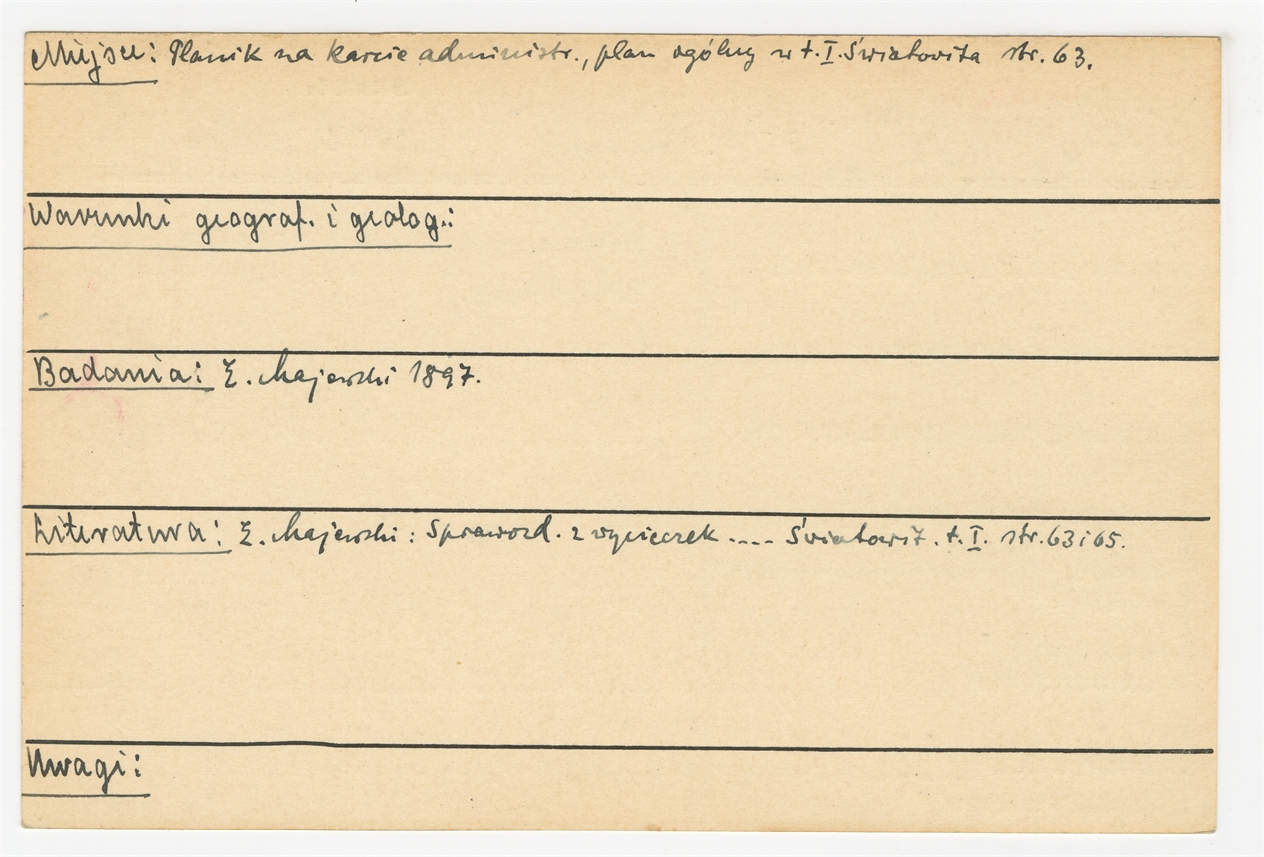 Miejsce: Planik na karcie administr., plan ogólny w t. I. Światowita str. 63.
Warunki geograf. i geolog.:
Badania: E. Majewski 1897.
Literatura: E. Majewski: Sprawozd. z wycieczek .... Światowit. t. I. str. 63 i 65.
Uwagi: